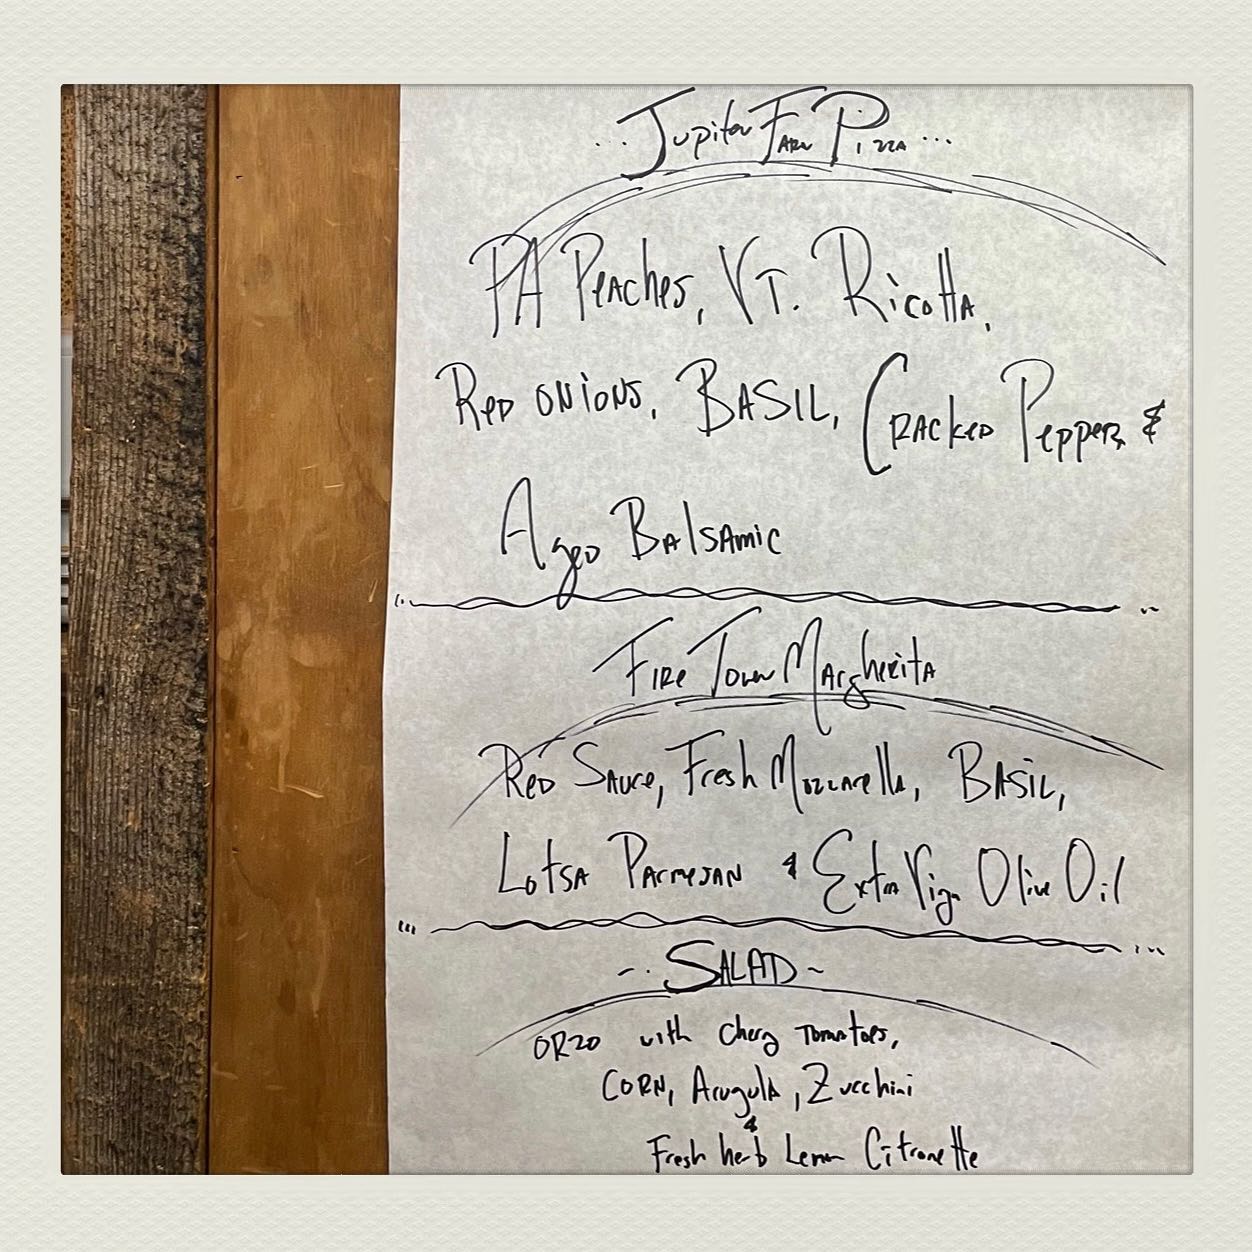 ... Jupiter Farm Pizza ...
PA Peaches, VT. Ricotta,
Red onions, Basil, Cracked Pepper &
Aged Balsamic
Fire Town Margherita
Red Sauce, Fresh Mozzarella, Basil,
Lotsa Parmesan & Extra Virgin Olive Oil
-. Salad ~
Orzo with Cherry Tomatoes,
Corn, Arugula, Zucchini
&
Fresh herb Lemon Citronette